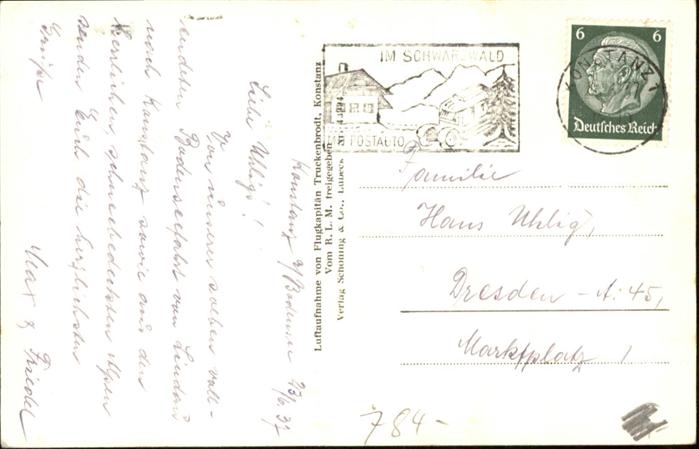 Konstanz a/Bodensee 23/6.37
Liebe Uhligs!
Von unserer soeben voll-
endeten Bodenseefahrt von Lindau
nach Konstanz sowie aus den
herrlichen, schneebedeckten Alpen
senden Euch die herzlichsten
Grüße
Max & Friedel
Luftaufnahme von Flugkapitän Truckenbrodt, Konstanz
Vom R. L. M. freigegeben
Verlag Schöning & Co., Lübeck
IM SCHWARZWALD
POSTAUTO
KONSTANZ 1
6 6
Deutsches Reich
Familie
Hans Uhlig,
Dresden - A: 45,
Marktplatz 1
784-